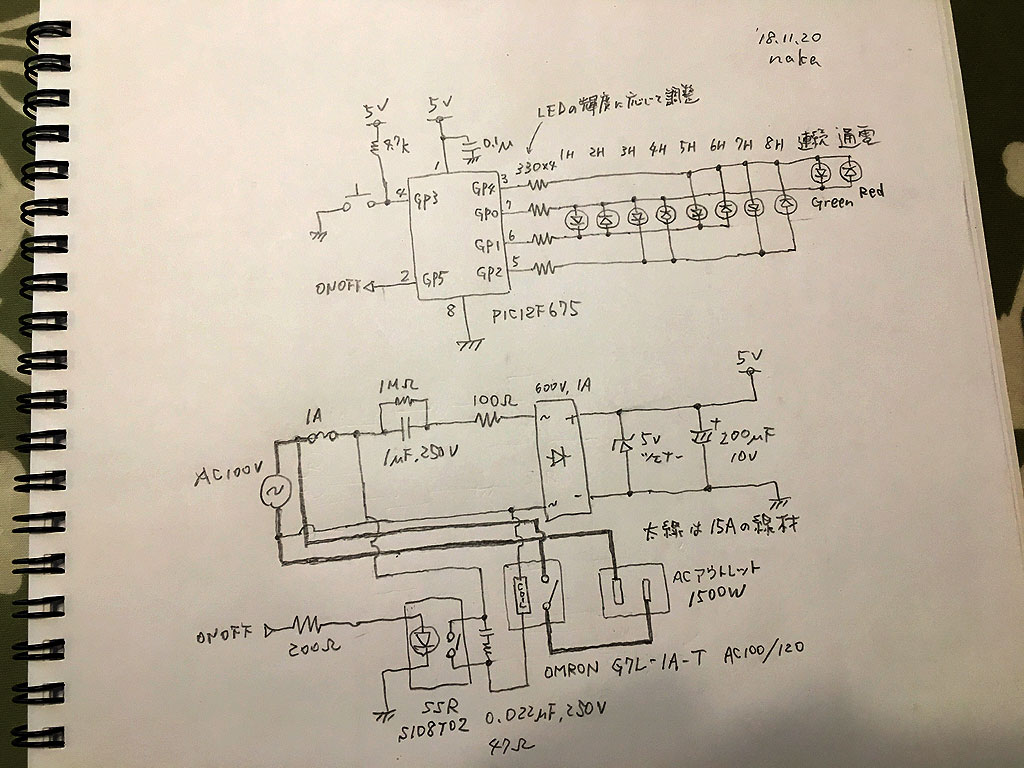 '18.11.20
naka
5V
5V
LEDの輝度に応じて調整
4.7K
0.1μ
330×4
1H 2H 3H 4H 5H 6H 7H 8H 連続 通電
1
4
GP3
GP4
3
GP0
7
GP1
6
GP2
5
Green
Red
ONOFF
2
GP5
8
PIC12F675
5V
1MΩ
1A
100Ω
600V, 1A
~
+
1μF, 250V
5V
ツェナー
+
200μF
10V
AC100V
~
~
-
太線は15Aの線材
ACアウトレット
1500W
COIL
ONOFF
200Ω
OMRON G7L-1A-T AC100/120
SSR
S108T02
0.022μF, 250V
47Ω